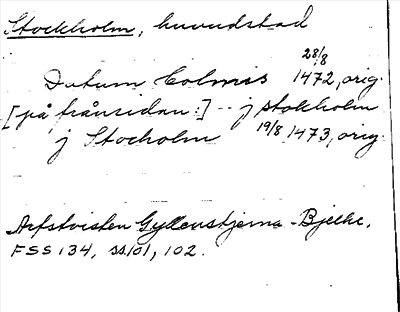 Stockholm, huvudstad
Datum Holmis 28/8 1472, orig.
[på frånsidan:] -- j stokholm
j Stocholm 19/8 1473, orig.
Arfstvisten Gyllenstjerna - Bjelke.
FSS 134, ss. 101, 102.